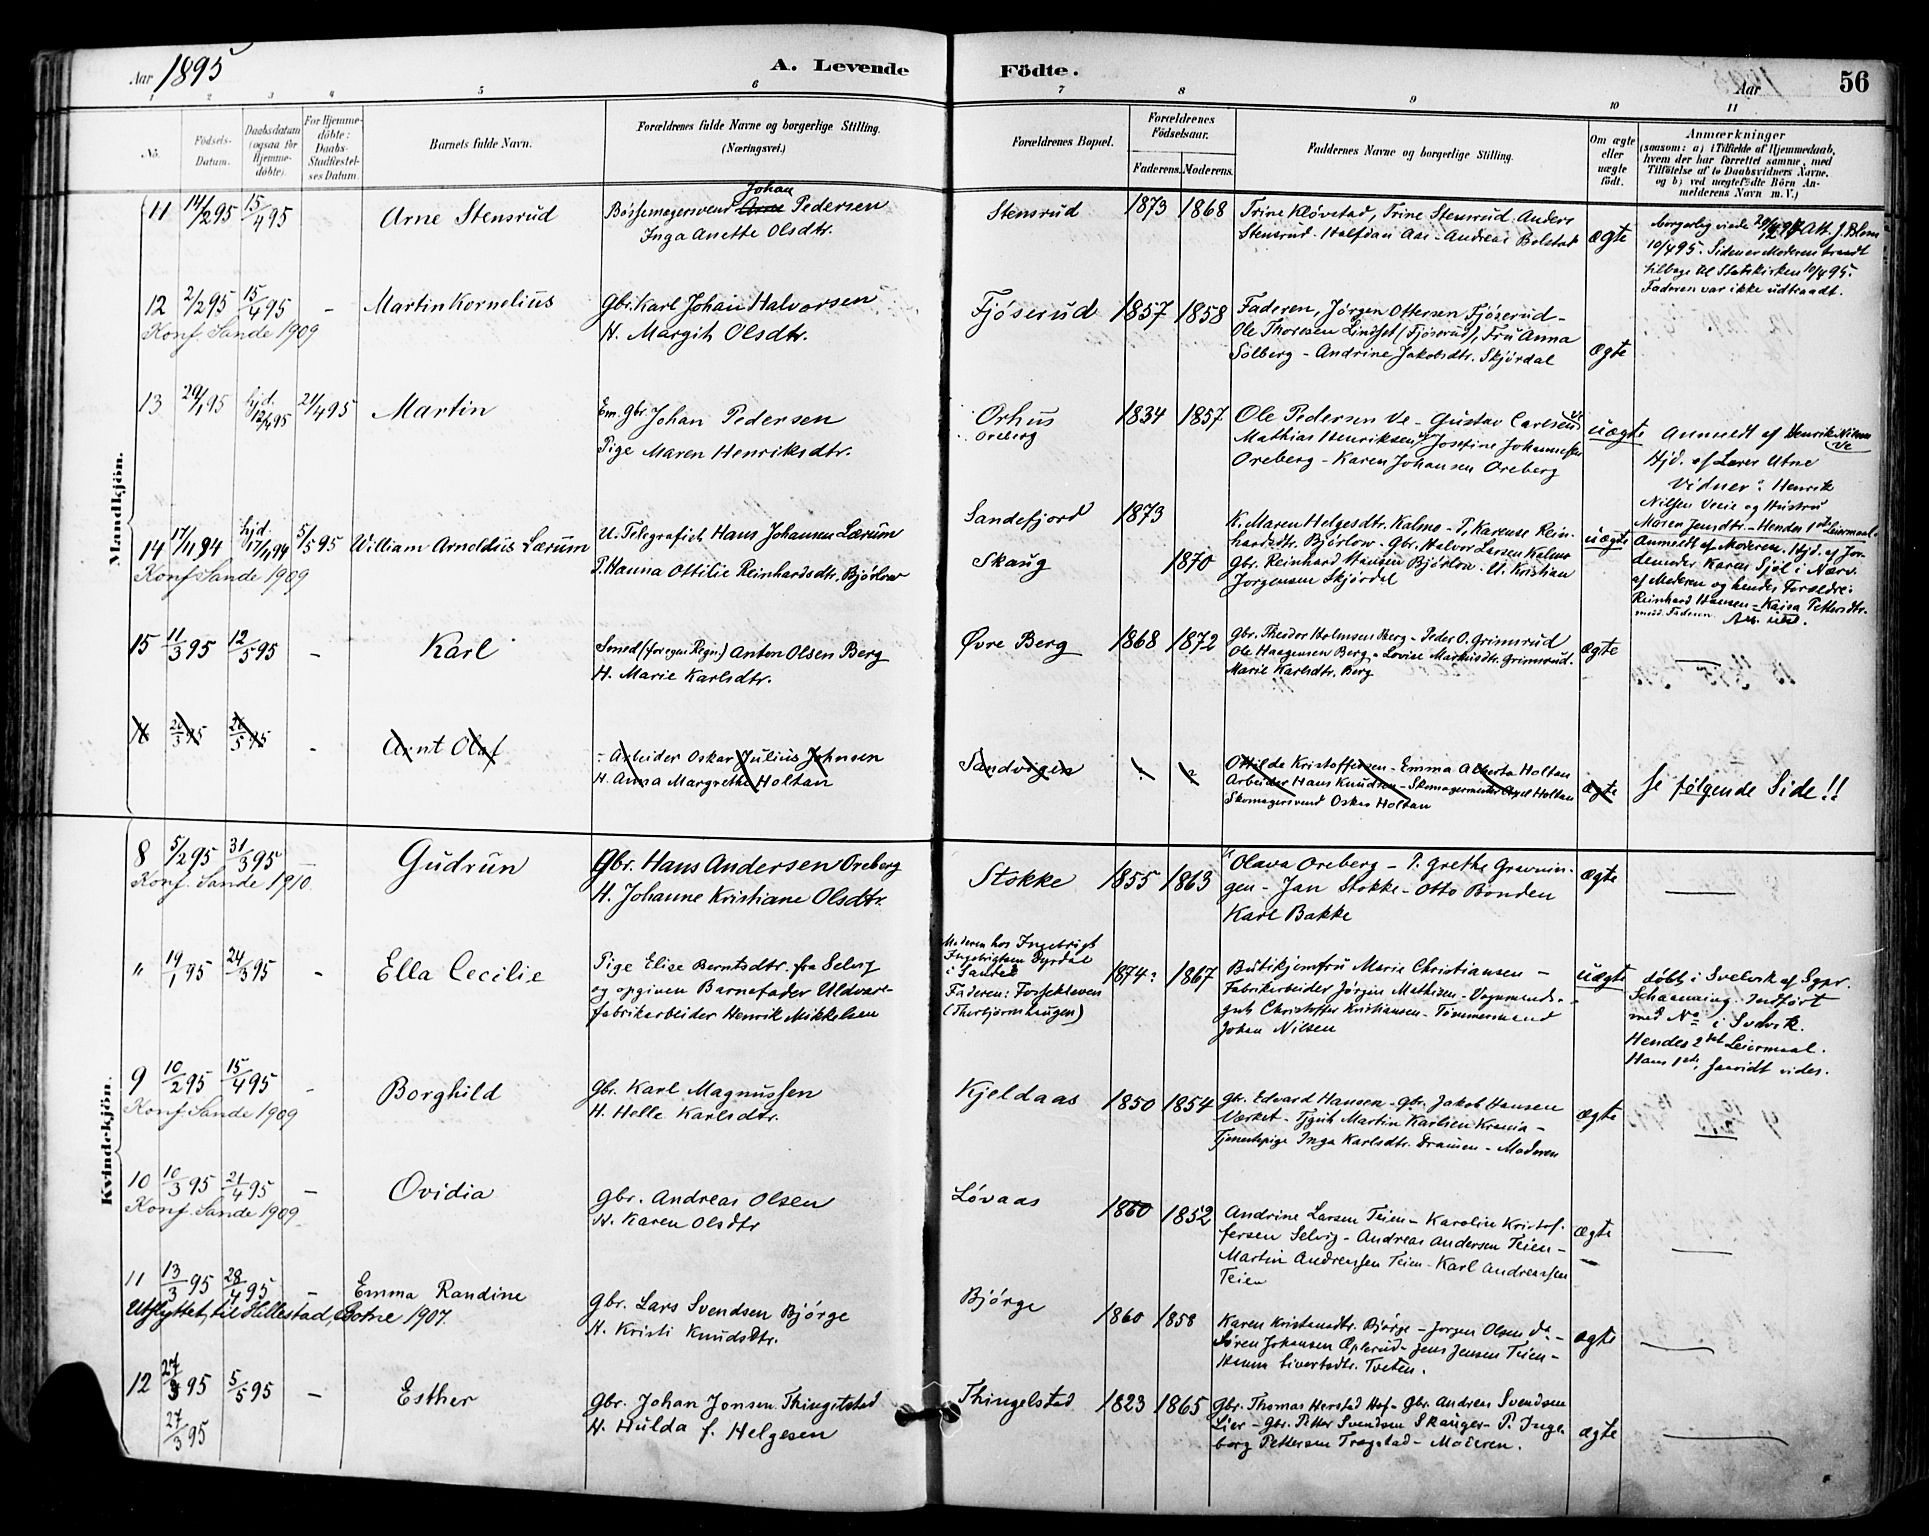 Aar 1895
A. Levende
Födte.
Aar
56
1 2 3 4 5 6 7 8 9 10 11
No.
Födsels-
Datum.
Daabsdatum
(ogsaa for
Hjemme-
döbte).
For Hjemme-
döbte:
Daabs-
Stadfæstel-
ses Datum.
Barnets fulde Navn.
Forældrenes fulde Navne og borgerlige Stilling.
(Næringsvei.)
Forældrenes Bopæl.
Forældrenes
Födselsaar.
Faderens. Moderens.
Faddernes Navne og borgerlige Stilling.
Om ægte
eller
uægte
födt.
Anmærkninger
(saasom: a) i Tilfælde af Hjemmedaab,
hvem der har forrettet samme, med
Tilföielse af to Daabsvidners Navne.
og b) ved uægtefödte Börn An-
melderens Navn m. V.)
Mandkjön.
11 14/2 95 15/4 95
Arne Stensrud
Johan
Bøssemagersvend Arne Pedersen
Inga Anette Olsdtr.
Stensrud 1873 1868
Trine Kløvstad, Trine Stensrud Anders
Stensrud - Halfdan Aas - Andreas Bolstad
ægte
borgerlig viede Att. J. Blom
10/4 95. Siden er Moderen traadt
tilbage til Statskirken 10/4 95.
Faderen var ikke udtraadt.
12 2/2 95 15/4 95 -
Konf. Sande 1909
Martin Kornelius
Gbr. Karl Johan Halvorsen
H. Margith Olsdtr.
Fjøserud 1857 1858
Faderen, Jørgen Ottersen Fjøserud -
Ole Thoresen Lindset (Fjøserud), Fru Anna
Solberg - Andrine Jakobsdtr. Skjørdal
ægte
13 29/1 95 hjd. 12/4 95 21/4 95
Martin
Em. Gbr. Johan Pedersen
Pige Maren Henriksdtr.
Orhus
Oreberg
1834 1857
Ole Pedersen Ve - Gustav Carlsen Ve
Mathias Henriksen Josefine Johannesen
Oreberg - Karen Johansen Oreberg
uægte
Anmeldt af Henrik Nilsen
Ve
Hjd. af Lærer Utne
Vidner: Henrik
Nilsen Veie og Hustru
Maren Jensdtr. - Hendes 1ste Leiermaal.
14 17/11 94 hjd. 17/11 94 5/5 95
Konf. Sande 1909
William Arnoldus Lærum
U. Telegrafist Hans Johansen Lærum
P. Hanna Ottilie Reinhardsdtr. Bjørlow
Sandefjord 1873
Skaug 1870
K. Maren Helgesdtr. Kalmo - P. Karense Rein-
hardsdtr. Bjørlow - Gbr. Halvor Larsen Kalmo
Gbr. Reinhard Hansen Bjørlow - U. Kristian
Jørgensen Skjørdal
uægte
Anmeldt af Moderen. Hjd. af Jor-
demoder Karen Sjøl i Nærv.
af Moderen og hendes Forældre:
Reinhard Hansen - Kaisa Pettersdtr.
15 11/3 95 12/5 95 -
Karl
Smed (foregen Regn.) Anton Olsen Berg
H. Marie Karlsdtr.
Øvre Berg 1868 1872
Gbr. Theodor Holmsen Berg - Peder O. Grimsrud
Ole Haagensen Berg - Lovise Markusdtr. Grimsrud -
Marie Karlsdtr. Berg
ægte
16 20/3 95 26/5 95 -
Arnt Olaf
- Arbeider Oskar Julius Johnsen
H. Anna Margrethe Holtan
Sandvigen
Ottilde Kristoffersen - Emma Alberta Holtan
Arbeider Hans Knudsen - Skomagermester Axel Holtan
Skomagersvend Oskar Holtan
ægte
Se følgende Side!!
Kvindekjön.
8 5/2 95 31/3 95 -
Konf. Sande 1910.
Gudrun
Gbr. Hans Andersen Oreberg
H. Johanne Kristiane Olsdtr.
Stokke 1855 1863
Olava Oreberg - P. Grethe Gravnin-
gen - Jan Stokke - Otto Bonden
Karl Bakke
ægte
" 19/1 95 24/3 95 -
Ella Cecilie
Pige Elise Berntsdtr. fra Selvig
og opgiven Barnefader Uldvare-
fabrikarbeider Henrik Mikkelsen
Moderen hos Ingebrigt
Ingebrigtsen Dyrdal
i Sande
Faderen: Fossekleven
(Thorbjørnshaugen)
1874: 1867
Butikjomfru Marie Christiansen -
Fabrikarbeider Jørgen Mathisen - Vognmands-
gut Christoffer Kristiansen - Tømmermand
Johan Nilsen
uægte
døbt i Svelvik af Sgpr.
Schaanning. Indført
med No i Svelvik.
Hendes 2det Leiermaal.
Hans 1ste, saavidt vides.
9 10/2 95 15/4 95 -
Konf. Sande 1909
Borghild
Gbr. Karl Magnussen
H. Helle Karlsdtr.
Kjeldaas 1850 1854
Gbr. Edvard Hansen - Gbr. Jakob Hansen
Værket - Tjgut Martin Karlsen Krania -
Tjenestepige Inga Karlsdtr. Dramen - Moderen
ægte
10 10/3 95 21/4 95 -
Konf. Sande 1909
Ovidia
Gbr. Andreas Olsen
H. Karen Olsdtr
Løvaas 1860 1852
Andrine Larsen Teien - Karoline Kristof-
fersen Selvig - Andreas Andersen Teien -
Martin Andreassen Teien - Karl Andreassen
Teien
ægte
11 13/3 95 28/4 95 -
Utflyttet til Hillestad, Botne 1907.
Emma Randine
Gbr. Lars Svendsen Bjørge
H. Kristi Knudsdtr.
Bjørge 1860 1858
Karen Kristensdtr. Bjørge - Jørgen Olsen do -
Søren Johansen Oplerud - Jens Jensen Teien -
Hanna Sivertsdtr. Tveten.
ægte
12 27/3 95 5/5 95 -
27/3 95
Esther
Gbr. Johan Jonsen Thingelstad
H. Hulda f. Helgesen
Thingelstad 1823 1865
Gbr. Thomas Herstad Hof - Gbr. Andreas Svendsen
Lier - Gbr. Petter Svendsen Skauger - P. Inge-
borg Pettersen Tragstad - Moderen.
ægte